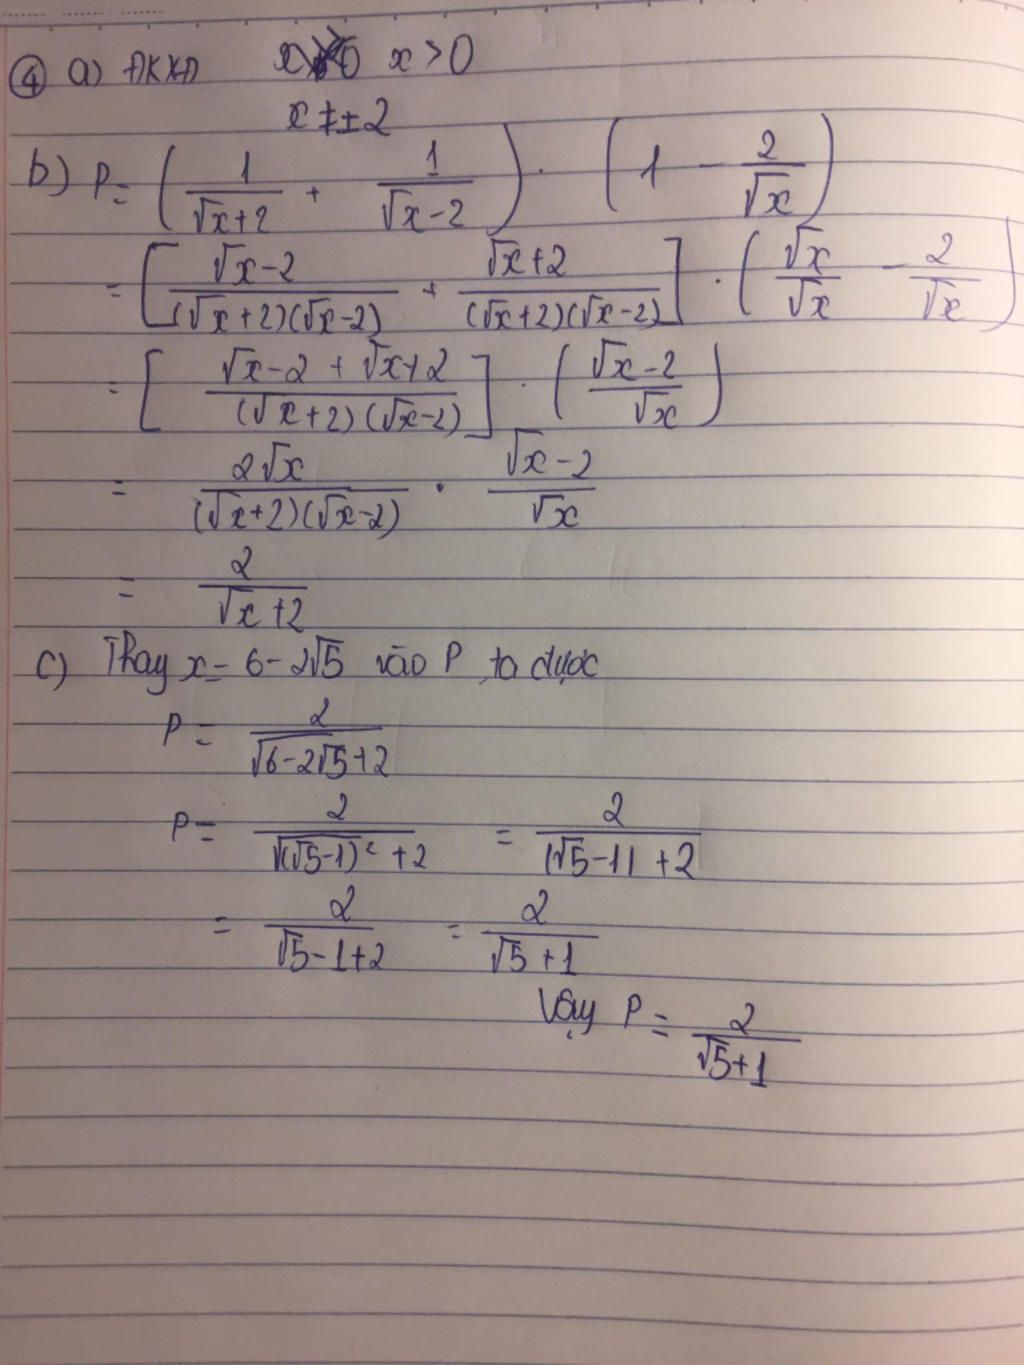 ④ a) ĐKXĐ x > 0
x ≠ ± 2
b) P = (1/(√x+2) + 1/(√x-2)) · (1 - 2/√x)
= [(√x-2)/((√x+2)(√x-2)) + (√x+2)/((√x+2)(√x-2))] · (√x/√x - 2/√x)
= [(√x-2+√x+2)/((√x+2)(√x-2))] · ((√x-2)/√x)
= 2√x/((√x+2)(√x-2)) · (√x-2)/√x
= 2/(√x+2)
c) Thay x = 6-2√5 vào P ta được
P = 2/(√(6-2√5)+2)
P = 2/(√((√5-1)²)+2) = 2/(|√5-1|+2)
= 2/(√5-1+2) = 2/(√5+1)
Vậy P = 2/(√5+1)